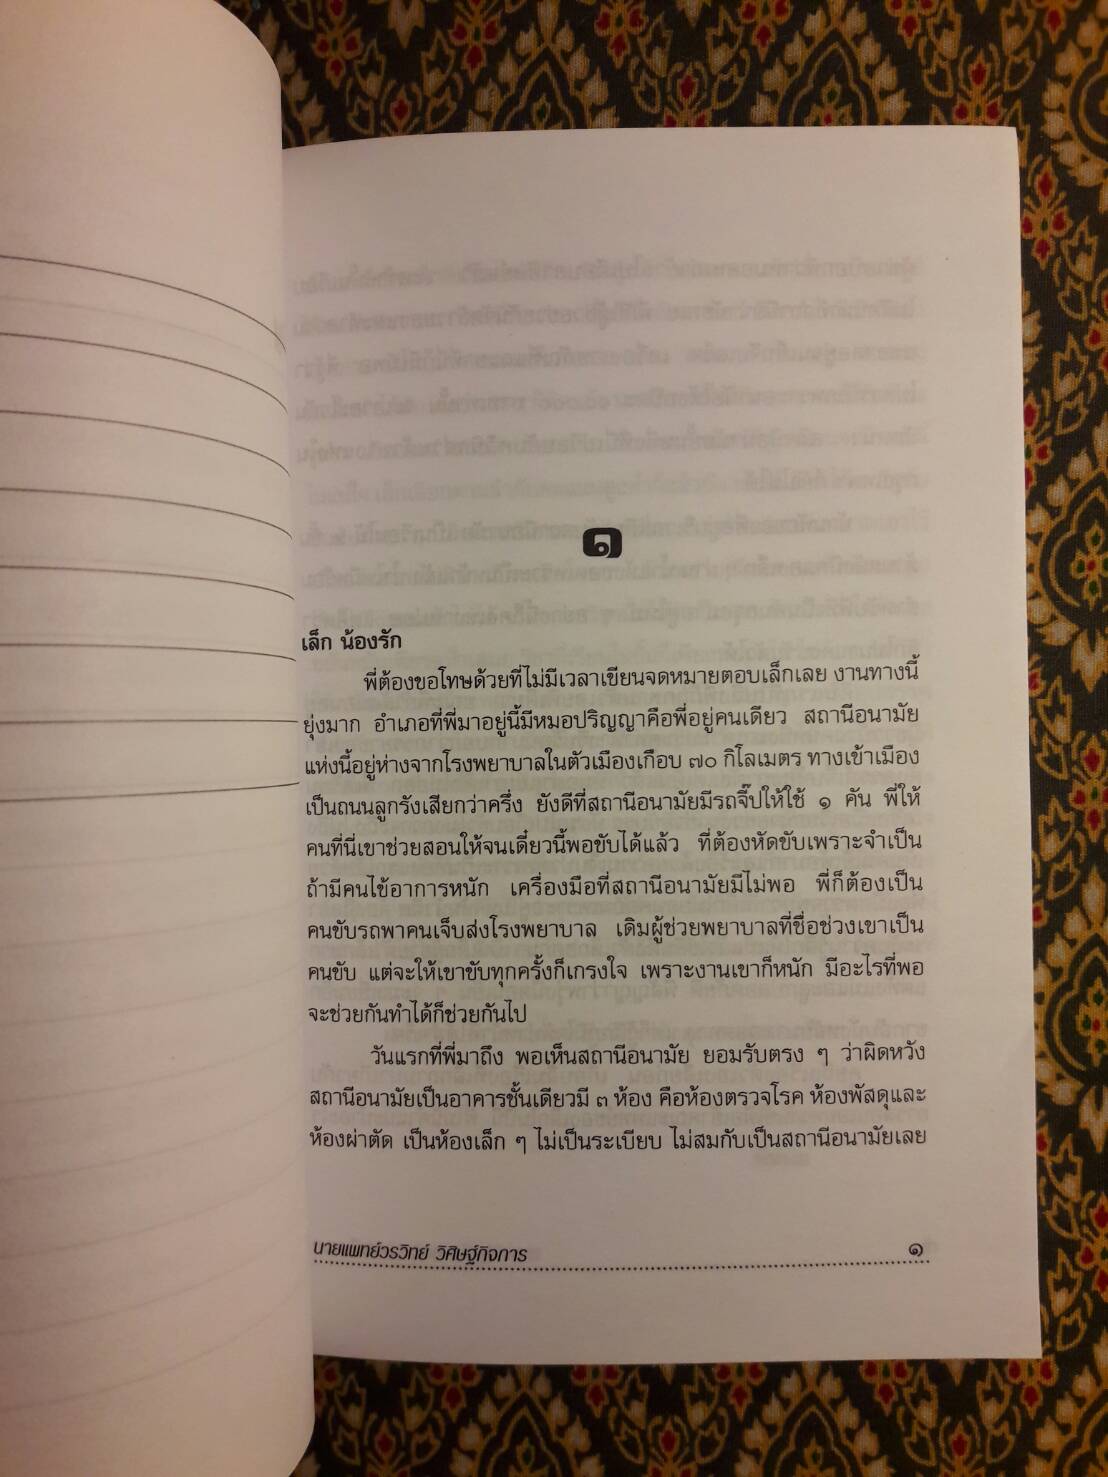 ๑
เล็ก น้องรัก
พี่ต้องขอโทษด้วยที่ไม่มีเวลาเขียนจดหมายตอบเล็กเลย งานทางนี้
ยุ่งมาก อำเภอที่พี่มาอยู่นี้มีหมอปริญญาคือพี่อยู่คนเดียว สถานีอนามัย
แห่งนี้อยู่ห่างจากโรงพยาบาลในตัวเมืองเกือบ ๗๐ กิโลเมตร ทางเข้าเมือง
เป็นถนนลูกรังเสียกว่าครึ่ง ยังดีที่สถานีอนามัยมีรถจี๊ปให้ใช้ ๑ คัน พี่ให้
คนที่นี่เขาช่วยสอนให้จนเดี๋ยวนี้พอขับได้แล้ว ที่ต้องหัดขับเพราะจำเป็น
ถ้ามีคนไข้อาการหนัก เครื่องมือที่สถานีอนามัยมีไม่พอ พี่ก็ต้องเป็น
คนขับรถพาคนเจ็บส่งโรงพยาบาล เดิมผู้ช่วยพยาบาลที่ชื่อช่วงเขาเป็น
คนขับ แต่จะให้เขาขับทุกครั้งก็เกรงใจ เพราะงานเขาก็หนัก มีอะไรที่พอ
จะช่วยกันทำได้ก็ช่วยกันไป
วันแรกที่พี่มาถึง พอเห็นสถานีอนามัย ยอมรับตรง ๆ ว่าผิดหวัง
สถานีอนามัยเป็นอาคารชั้นเดียวมี ๓ ห้อง คือห้องตรวจโรค ห้องพัสดุและ
ห้องผ่าตัด เป็นห้องเล็ก ๆ ไม่เป็นระเบียบ ไม่สมกับเป็นสถานีอนามัยเลย
นายแพทย์วรวิทย์ วิศิษฐ์กิจการ ๑